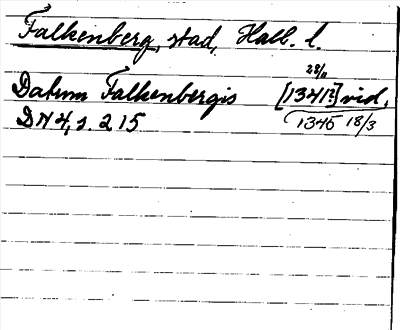 Falkenberg, stad, Hall. l.
28/11
Datum Falkenbergis [1341?] vid.
DN 4, s. 215 1345 18/3